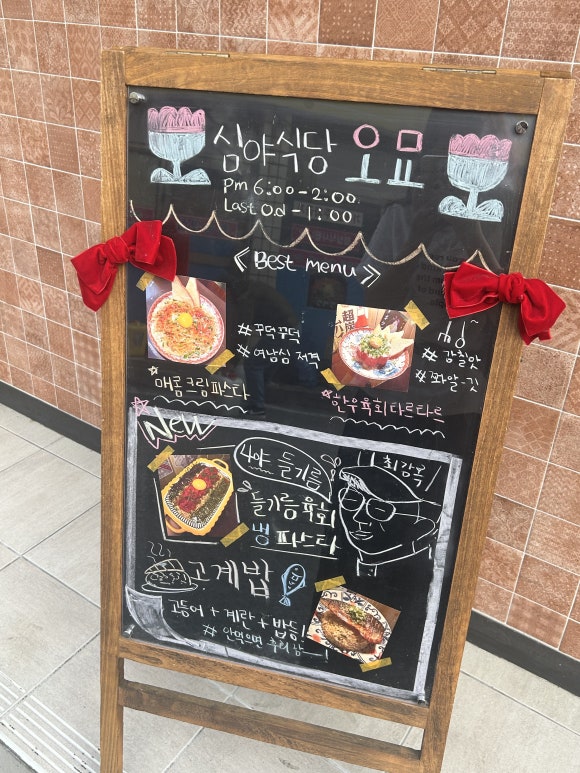 심야식당 오묘
Pm 6:00-2:00
Last O.d - 1:00
《Best menu》
#꾸덕꾸덕
#여남심 저격
매콤크림파스타
#감칠맛
#쫘알-깃
한우육회타르타르
NEW
4야 들기름
최강록
들기름육회
냉파스타
고계밥
고등어+계란+밥등!
# 안먹으면 후회남...!